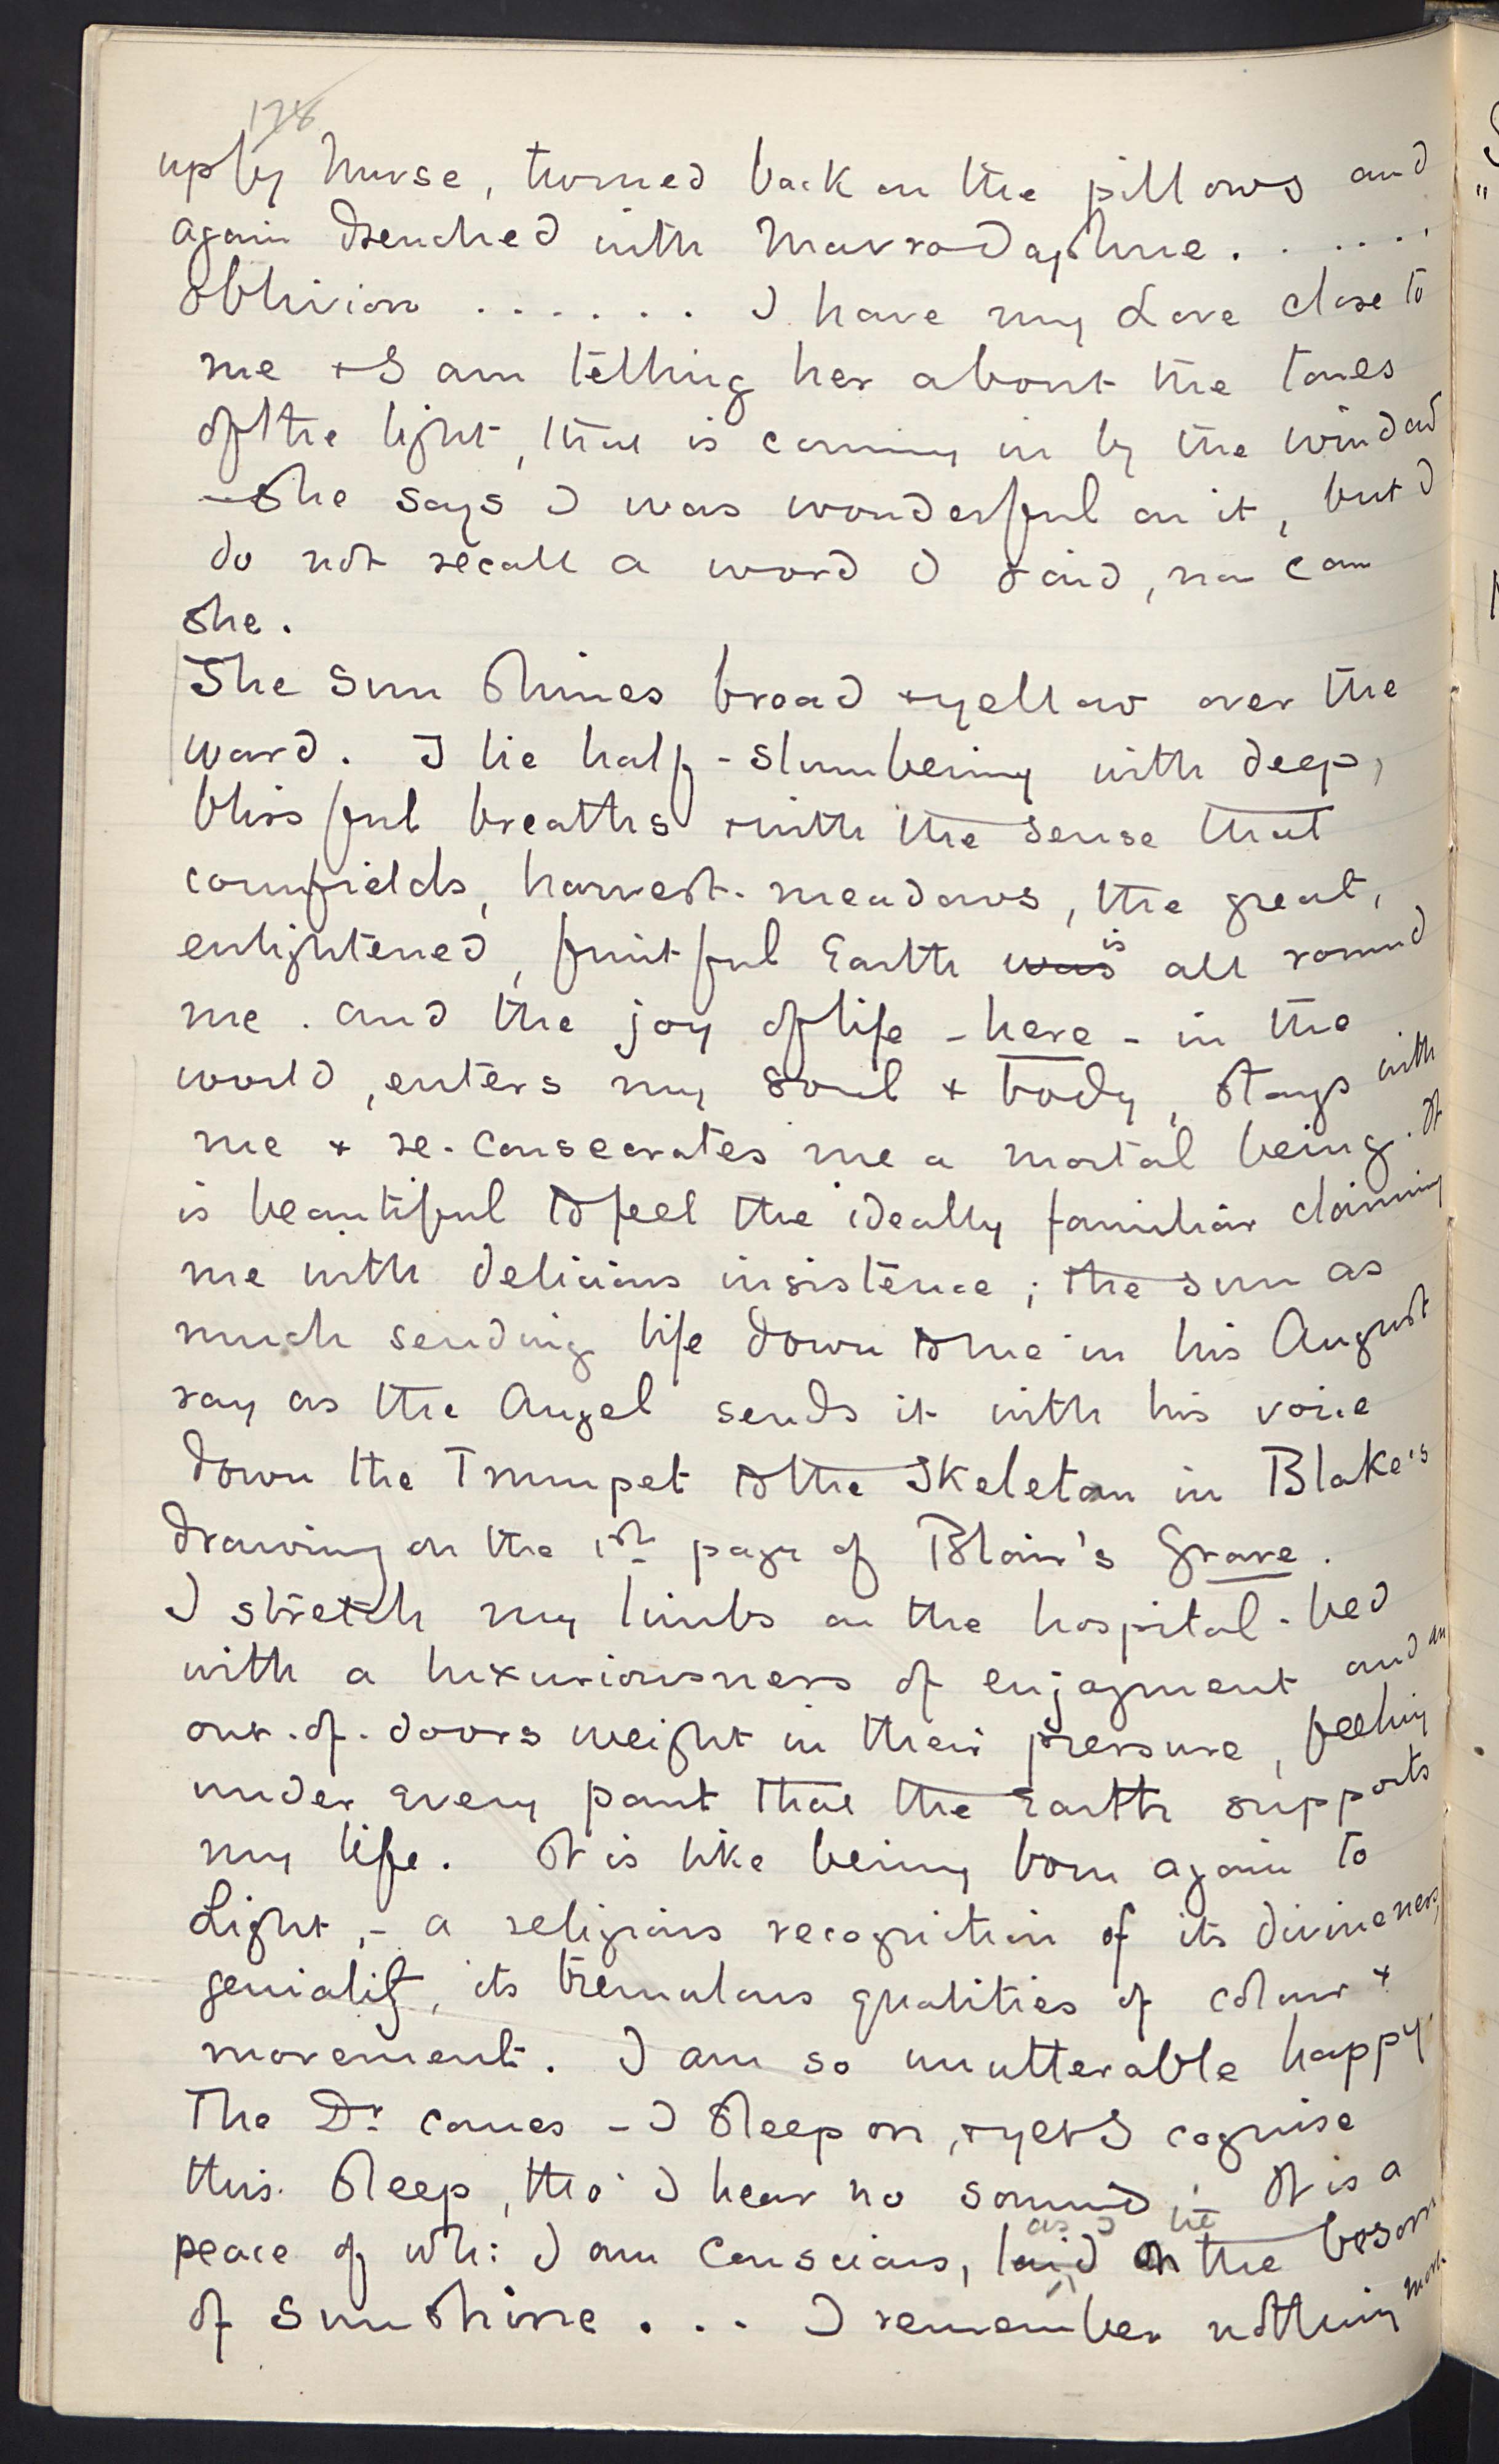 178
up by Nurse, turned back on the pillows and
again drenched with Mavrodaphne . . . . . .
oblivion . . . . . . I have my Love close to
me + I am telling her about the tones
of the light, that is coming in by the window
– She says I was wonderful on it, but I
do not recall a word I said, nor can
she.
The Sun shines broad + yellow over the
ward. I lie half-slumbering with deep,
blissful breaths + with the sense that
cornfields, harvest-meadows, the great,
enlightened, fruitful Earth was is all round
me. and the joy of life – here – in the
world, enters my soul + body, stays with
me + re-consecrates me a mortal being. It
is beautiful to feel the ideally familiar claiming
me with delicious insistence; the sun as
much sending life down to me in his August
ray as the Angel sends it with his voice
down the Trumpet to the Skeleton in Blake's
drawing on the 1st page of Blair's Grave.
I stretch my limbs on the hospital-bed
with a luxuriousness of enjoyment and an
out-of-doors weight in their pressure, feeling
under every part that the Earth supports
my life. It is like being born again to
Light, – a religious recognition of its divineness,
geniality, its tremulous qualities of colour +
movement. I am so unutterable happy.
The Dr comes – I sleep on, + yet I cognise
this sleep, tho' I hear no sound; It is a
peace of wh: I am conscious, laid as I lie on the bosom
of sunshine . . . I remember nothing more